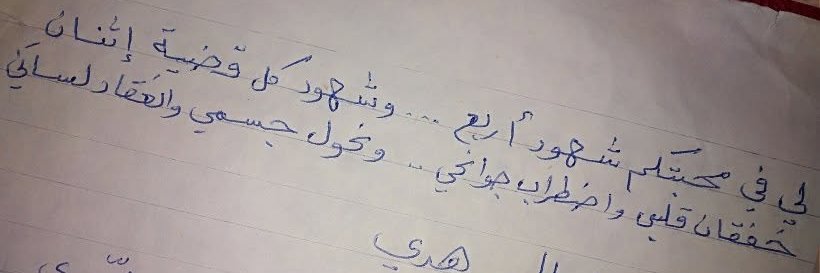 لي في محبتكم شهود أربع ... وشهود كل قضية إثنان
خفقان قلبي واضطراب جوانحي .. ونحول جسمي وانعقاد لساني
هدي